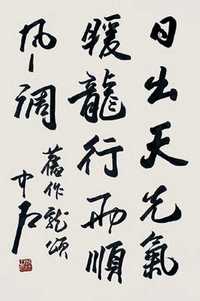 日出天光氣
暖龍行雨順
風調
舊作龍頌
中石